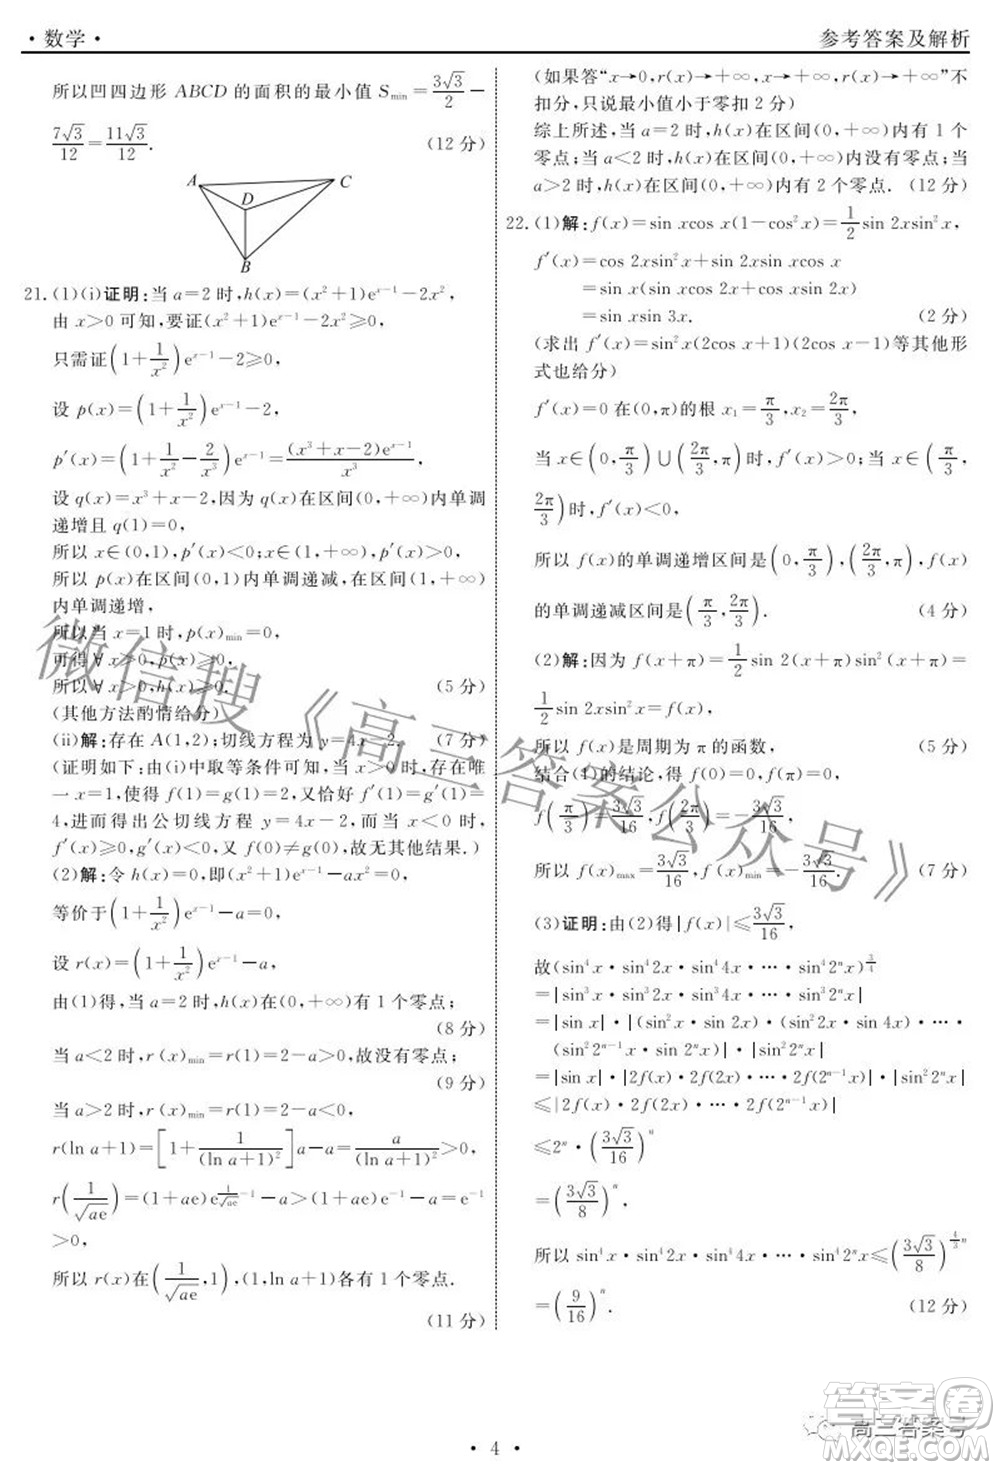 · 数学 ·
参考答案及解析
所以凹四边形 ABCD 的面积的最小值 Smin = 3√3/2 −
7√3/12 = 11√3/12. (12 分)
A
C
D
B
21. (1)(i)证明:当 a=2 时,h(x)=(x²+1)eˣ⁻¹−2x²,
由 x>0 可知,要证(x²+1)eˣ⁻¹−2x²≥0,
只需证(1+1/x²)eˣ⁻¹−2≥0,
设 p(x)=(1+1/x²)eˣ⁻¹−2,
p′(x)=(1+1/x²−2/x³)eˣ⁻¹=(x³+x−2)eˣ⁻¹/x³,
设 q(x)=x³+x−2,因为 q(x)在区间(0,+∞)内单调
递增且 q(1)=0,
所以 x∈(0,1),p′(x)<0;x∈(1,+∞),p′(x)>0,
所以 p(x)在区间(0,1)内单调递减,在区间(1,+∞)
内单调递增,
所以当 x=1 时,p(x)min=0,
可得∀x>0,p(x)≥0,
所以∀x>0,h(x)≥0. (5 分)
(其他方法酌情给分)
(ii)解:存在 A(1,2);切线方程为 y=4x−2. (7 分)
(证明如下:由(i)中取等条件可知,当 x>0 时,存在唯
一 x=1,使得 f(1)=g(1)=2,又恰好 f′(1)=g′(1)=
4,进而得出公切线方程 y=4x−2,而当 x<0 时,
f′(x)≥0,g′(x)<0,又 f(0)≠g(0),故无其他结果.)
(2)解:令 h(x)=0,即(x²+1)eˣ⁻¹−ax²=0,
等价于(1+1/x²)eˣ⁻¹−a=0,
设 r(x)=(1+1/x²)eˣ⁻¹−a,
由(1)得,当 a=2 时,h(x)在(0,+∞)有 1 个零点;
(8 分)
当 a<2 时,r(x)min=r(1)=2−a>0,故没有零点;
(9 分)
当 a>2 时,r(x)min=r(1)=2−a<0,
r(ln a+1)=[1+1/(ln a+1)²]a−a=a/(ln a+1)²>0,
r(1/√ae)=(1+ae)e^(1/√ae −1)−a>(1+ae)e⁻¹−a=e⁻¹
>0,
所以 r(x)在(1/√ae,1),(1,ln a+1)各有 1 个零点.
(11 分)
(如果答“x→0,r(x)→+∞,x→+∞,r(x)→+∞”不
扣分,只说最小值小于零扣 2 分)
综上所述,当 a=2 时,h(x)在区间(0,+∞)内有 1 个
零点;当 a<2 时,h(x)在区间(0,+∞)内没有零点;当
a>2 时,h(x)在区间(0,+∞)内有 2 个零点. (12 分)
22. (1)解:f(x)=sin xcos x(1−cos²x)=1/2 sin 2xsin²x,
f′(x)=cos 2xsin²x+sin 2xsin xcos x
=sin x(sin xcos 2x+cos xsin 2x)
=sin xsin 3x. (2 分)
(求出 f′(x)=sin²x(2cos x+1)(2cos x−1)等其他形
式也给分)
f′(x)=0 在(0,π)的根 x₁=π/3,x₂=2π/3,
当 x∈(0,π/3)∪(2π/3,π)时,f′(x)>0;当 x∈(π/3,
2π/3)时,f′(x)<0,
所以 f(x)的单调递增区间是(0,π/3),(2π/3,π),f(x)
的单调递减区间是(π/3,2π/3). (4 分)
(2)解:因为 f(x+π)=1/2 sin 2(x+π)sin²(x+π)=
1/2 sin 2xsin²x=f(x),
所以 f(x)是周期为 π 的函数, (5 分)
结合(1)的结论,得 f(0)=0,f(π)=0,
f(π/3)=3√3/16,f(2π/3)=−3√3/16,
所以 f(x)max=3√3/16,f(x)min=−3√3/16. (7 分)
(3)证明:由(2)得|f(x)|≤3√3/16,
故(sin⁴x·sin⁴2x·sin⁴4x·⋯·sin⁴2ⁿx)^(3/4)
=|sin³x·sin³2x·sin³4x·⋯·sin³2ⁿx|
=|sin x|·|(sin²x·sin 2x)·(sin²2x·sin 4x)·⋯·
(sin²2ⁿ⁻¹x·sin 2ⁿx)|·|sin²2ⁿx|
=|sin x|·|2f(x)·2f(2x)·⋯·2f(2ⁿ⁻¹x)|·|sin²2ⁿx|
≤|2f(x)·2f(2x)·⋯·2f(2ⁿ⁻¹x)|
≤2ⁿ·(3√3/16)ⁿ
=(3√3/8)ⁿ.
所以 sin⁴x·sin⁴2x·sin⁴4x·⋯·sin⁴2ⁿx≤(3√3/8)^(4/3 n)
=(9/16)ⁿ. (12 分)
微信搜《高三答案公众号》
高三答案号
答案圈
MXQE.COM
· 4 ·